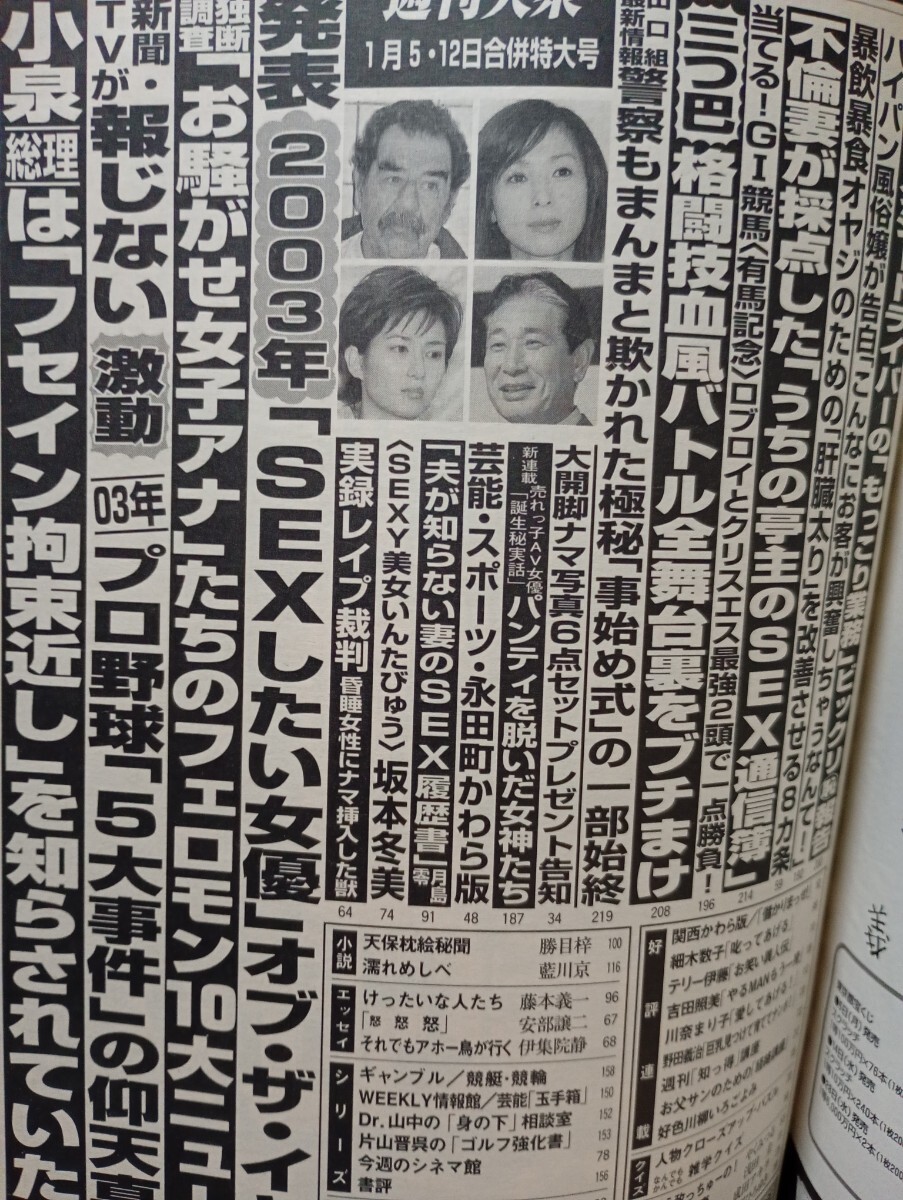 週刊大衆
1月5・12日合併特大号
ハイパン風俗嬢が告白「こんなにお客が興奮しちゃうなんて!」
暴飲暴食オヤジのための「肝臓太り」を改善させる8カ条
「不倫妻が採点した「うちの亭主のSEX通信簿」
当てる!GI競馬〈有馬記念〉ロブロイとクリスエス最強2頭で一点勝負!
三つ巴 格闘技血風バトル全舞台裏をブチまけ
山口組最新情報 警察もまんまと欺かれた極秘「事始め式」の一部始終
大開脚ナマ写真6点セットプレゼント告知
新連載 売れっ子AV女優「誕生秘実話」 パンティを脱いだ女神たち
芸能・スポーツ・永田町かわら版
「夫が知らない妻のSEX履歴書」
〈SEXY美女いんたびゅう〉坂本冬美
実録レイプ裁判 昏睡女性にナマ挿入した獣
64
74
91
48
187
34
219
208
196
214
発表 2003年「SEXしたい女優」オブ・ザ・イ
独断調査「お騒がせ女子アナ」たちのフェロモン10大ニュ
新聞・TVが報じない 激動 03年 プロ野球「5大事件」の仰天真
小泉総理は「フセイン拘束近し」を知らされていた
小説
天保枕絵秘聞 勝目梓 100
濡れめしべ 藍川京 116
エッセイ
けったいな人たち 藤本義一 96
「怒怒怒」 安部譲二 67
それでもアホー鳥が行く 伊集院静 68
シリーズ
ギャンブル/競艇・競輪 158
WEEKLY情報館/芸能「玉手箱」 150
Dr.山中の「身の下」相談室 152
片山晋呉の「ゴルフ強化書」 153
今週のシネマ館 78
書評 156
好評連載
関西かわら版/「儲かりまっせ」
細木数子「叱ってあげる」
テリー伊藤「お笑い異人伝」
吉田照美「やるMANもう一発」
川奈まり子「愛してあげる」
野田義治「巨乳見つけて育ててナンボ」
週刊「知っ得」講座
お父サンのための「経済講座」
好色川柳いろごよみ
クイズ
人物クローズアップ・パズル
なんでもかんでも雑学クイズ